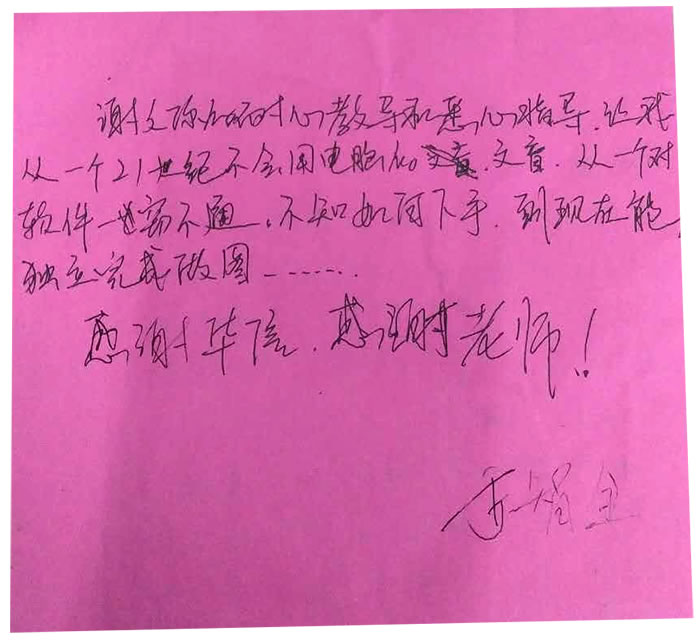 谢谢您的耐心教导和悉心指导,让我
从一个21世纪不会用电脑的文盲,从一个对
软件一窍不通,不知如何下手,到现在能
独立完成做图------
感谢华信,感谢老师!